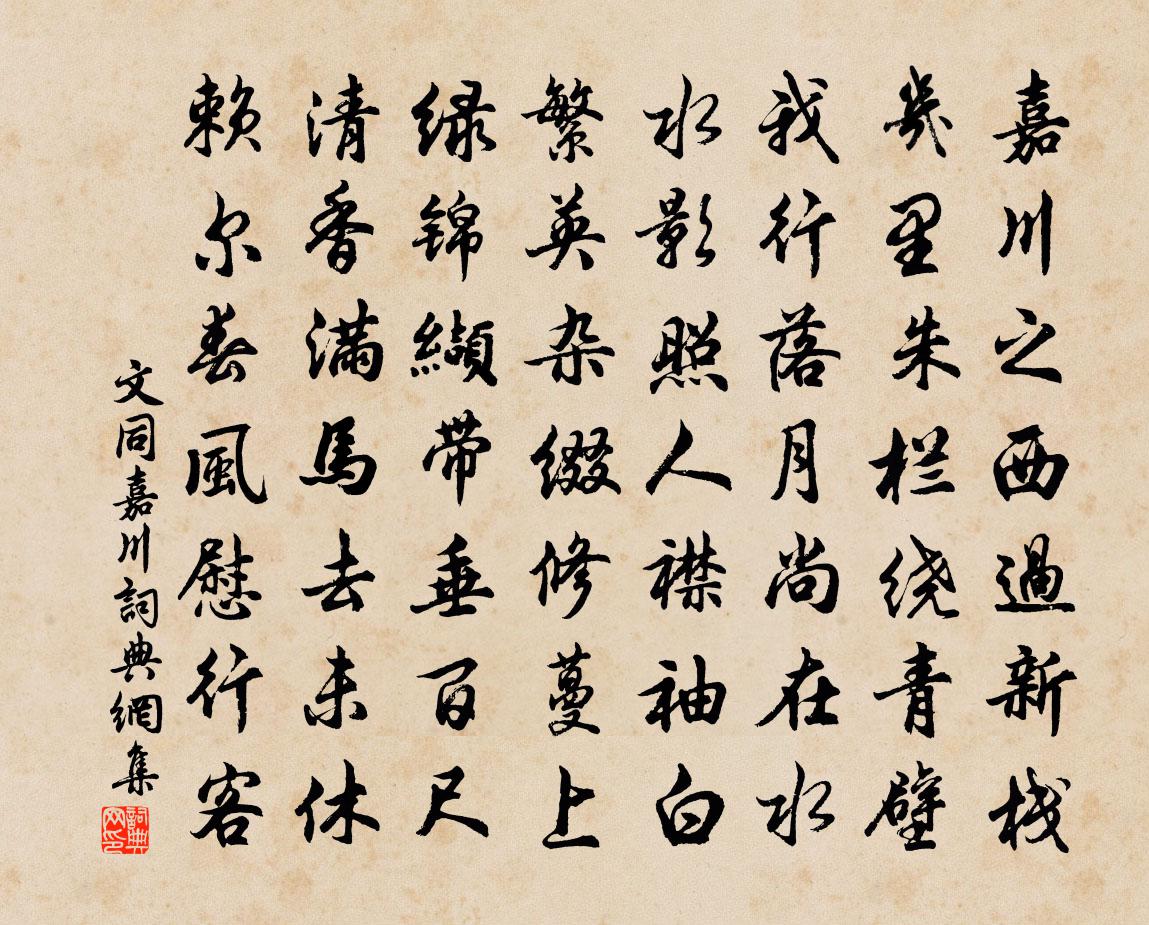 嘉川之西過新栈
幾里朱栏绕青壁
我行落月尚在水
水影照人襟袖白
繁英杂缀修蔓上
绿锦纈带垂百尺
清香满馬去未休
赖尔春風慰行客
文同嘉川詞典網集
詞典网印